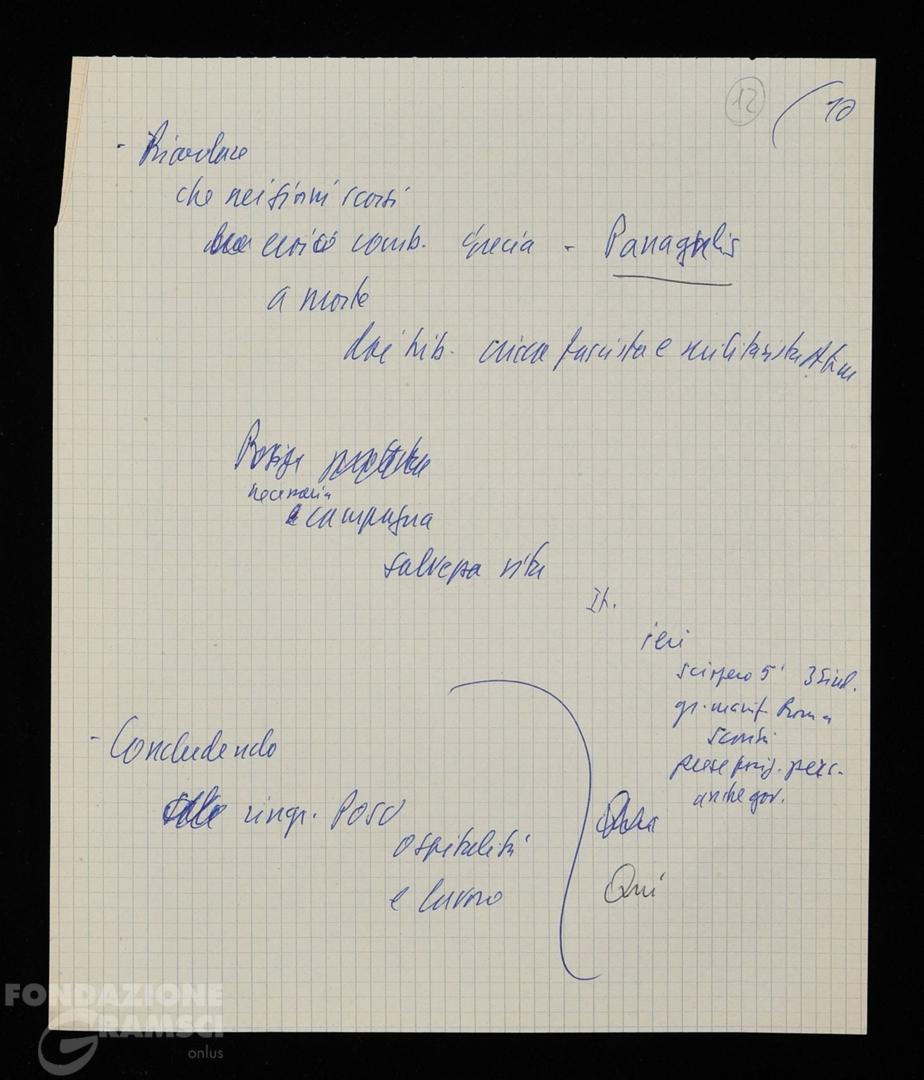 12
10
- Ricordare
che nei giorni scorsi
eroico comb. Grecia - Panagulis
a morte
dai trib. cricca fascista e militarista Atene
necessaria
campagna
salvezza vita
It.
ieri
sciopero 5' 3 sind.
gr. manif. Roma
scontri
prese posiz. pers.
anche gov.
- Concludendo
ringr. POSU
ospitalità
e lavoro
Qui
FONDAZIONE
GRAMSCI
onlus